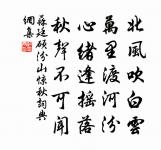 北風吹白雲
萬里渡河汾
心緒逢搖落
秋聲不可聞
蘇廷碩汾山惊秋詞典
網集